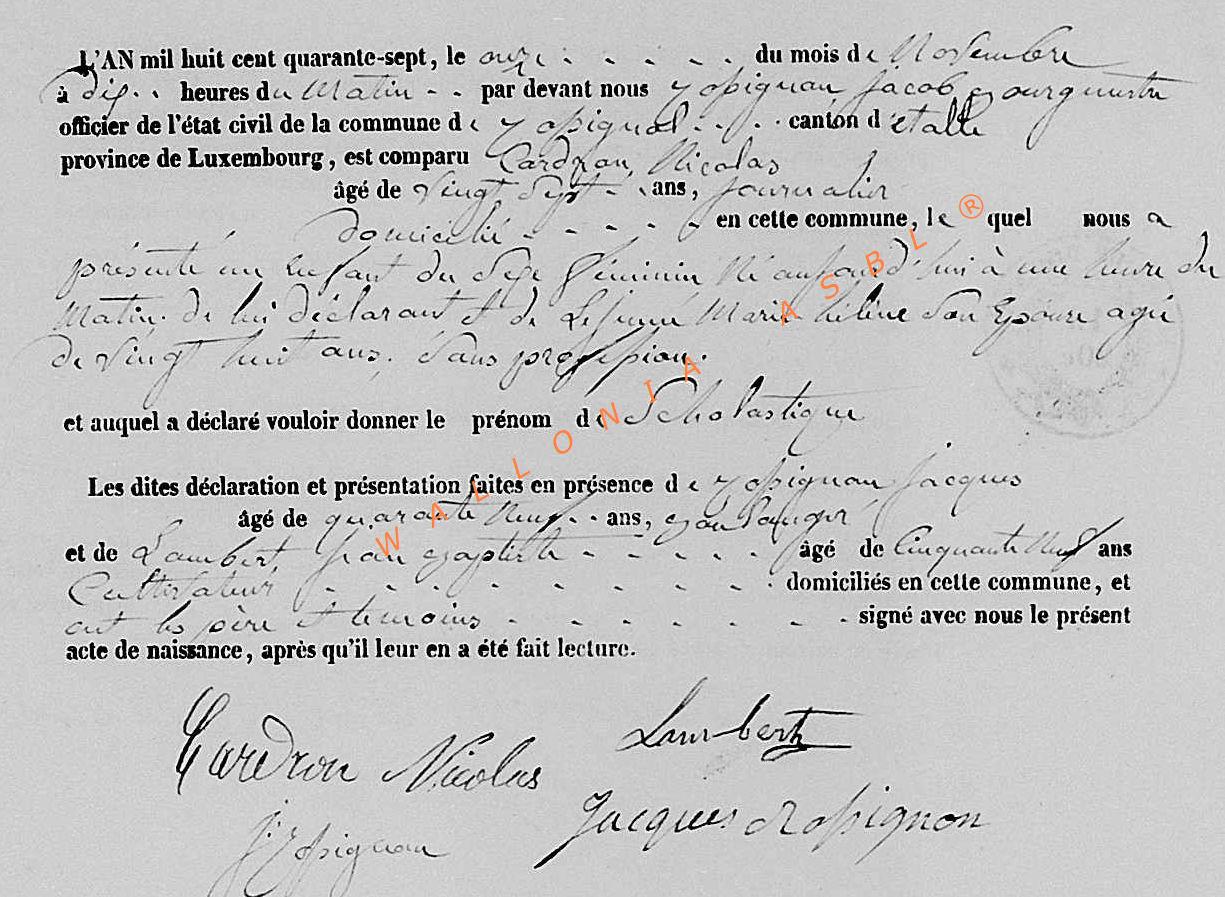 L'AN mil huit cent quarante-sept, le onze du mois de Novembre
à dix heures du Matin par devant nous Rossignon Jacob Bourgmestre
officier de l'état civil de la commune de Rossignol canton d'etalle
province de Luxembourg, est comparu Cardron Nicolas
âgé de vingt sept ans, journalier
domicilié en cette commune, lequel nous a
présenté un Enfant du Sexe féminin Né aujourd'hui à une heure du
Matin. de lui déclarant et de Marie hélène Son Epouse agée
de vingt huit ans. Sans profession.
et auquel a déclaré vouloir donner le prénom de Scholastique
Les dites déclaration et présentation faites en présence de Rossignon Jacques
âgé de quarante Neuf ans, Boulanger
et de Lambert, jean Baptiste âgé de Cinquante Neuf ans
Cultivateur domiciliés en cette commune, et
ont les père et temoins signé avec nous le présent
acte de naissance, après qu'il leur en a été fait lecture.
WALLONIA ASBL ®
Cardron Nicolas Lambert
J. Rossignon Jacques Rossignon